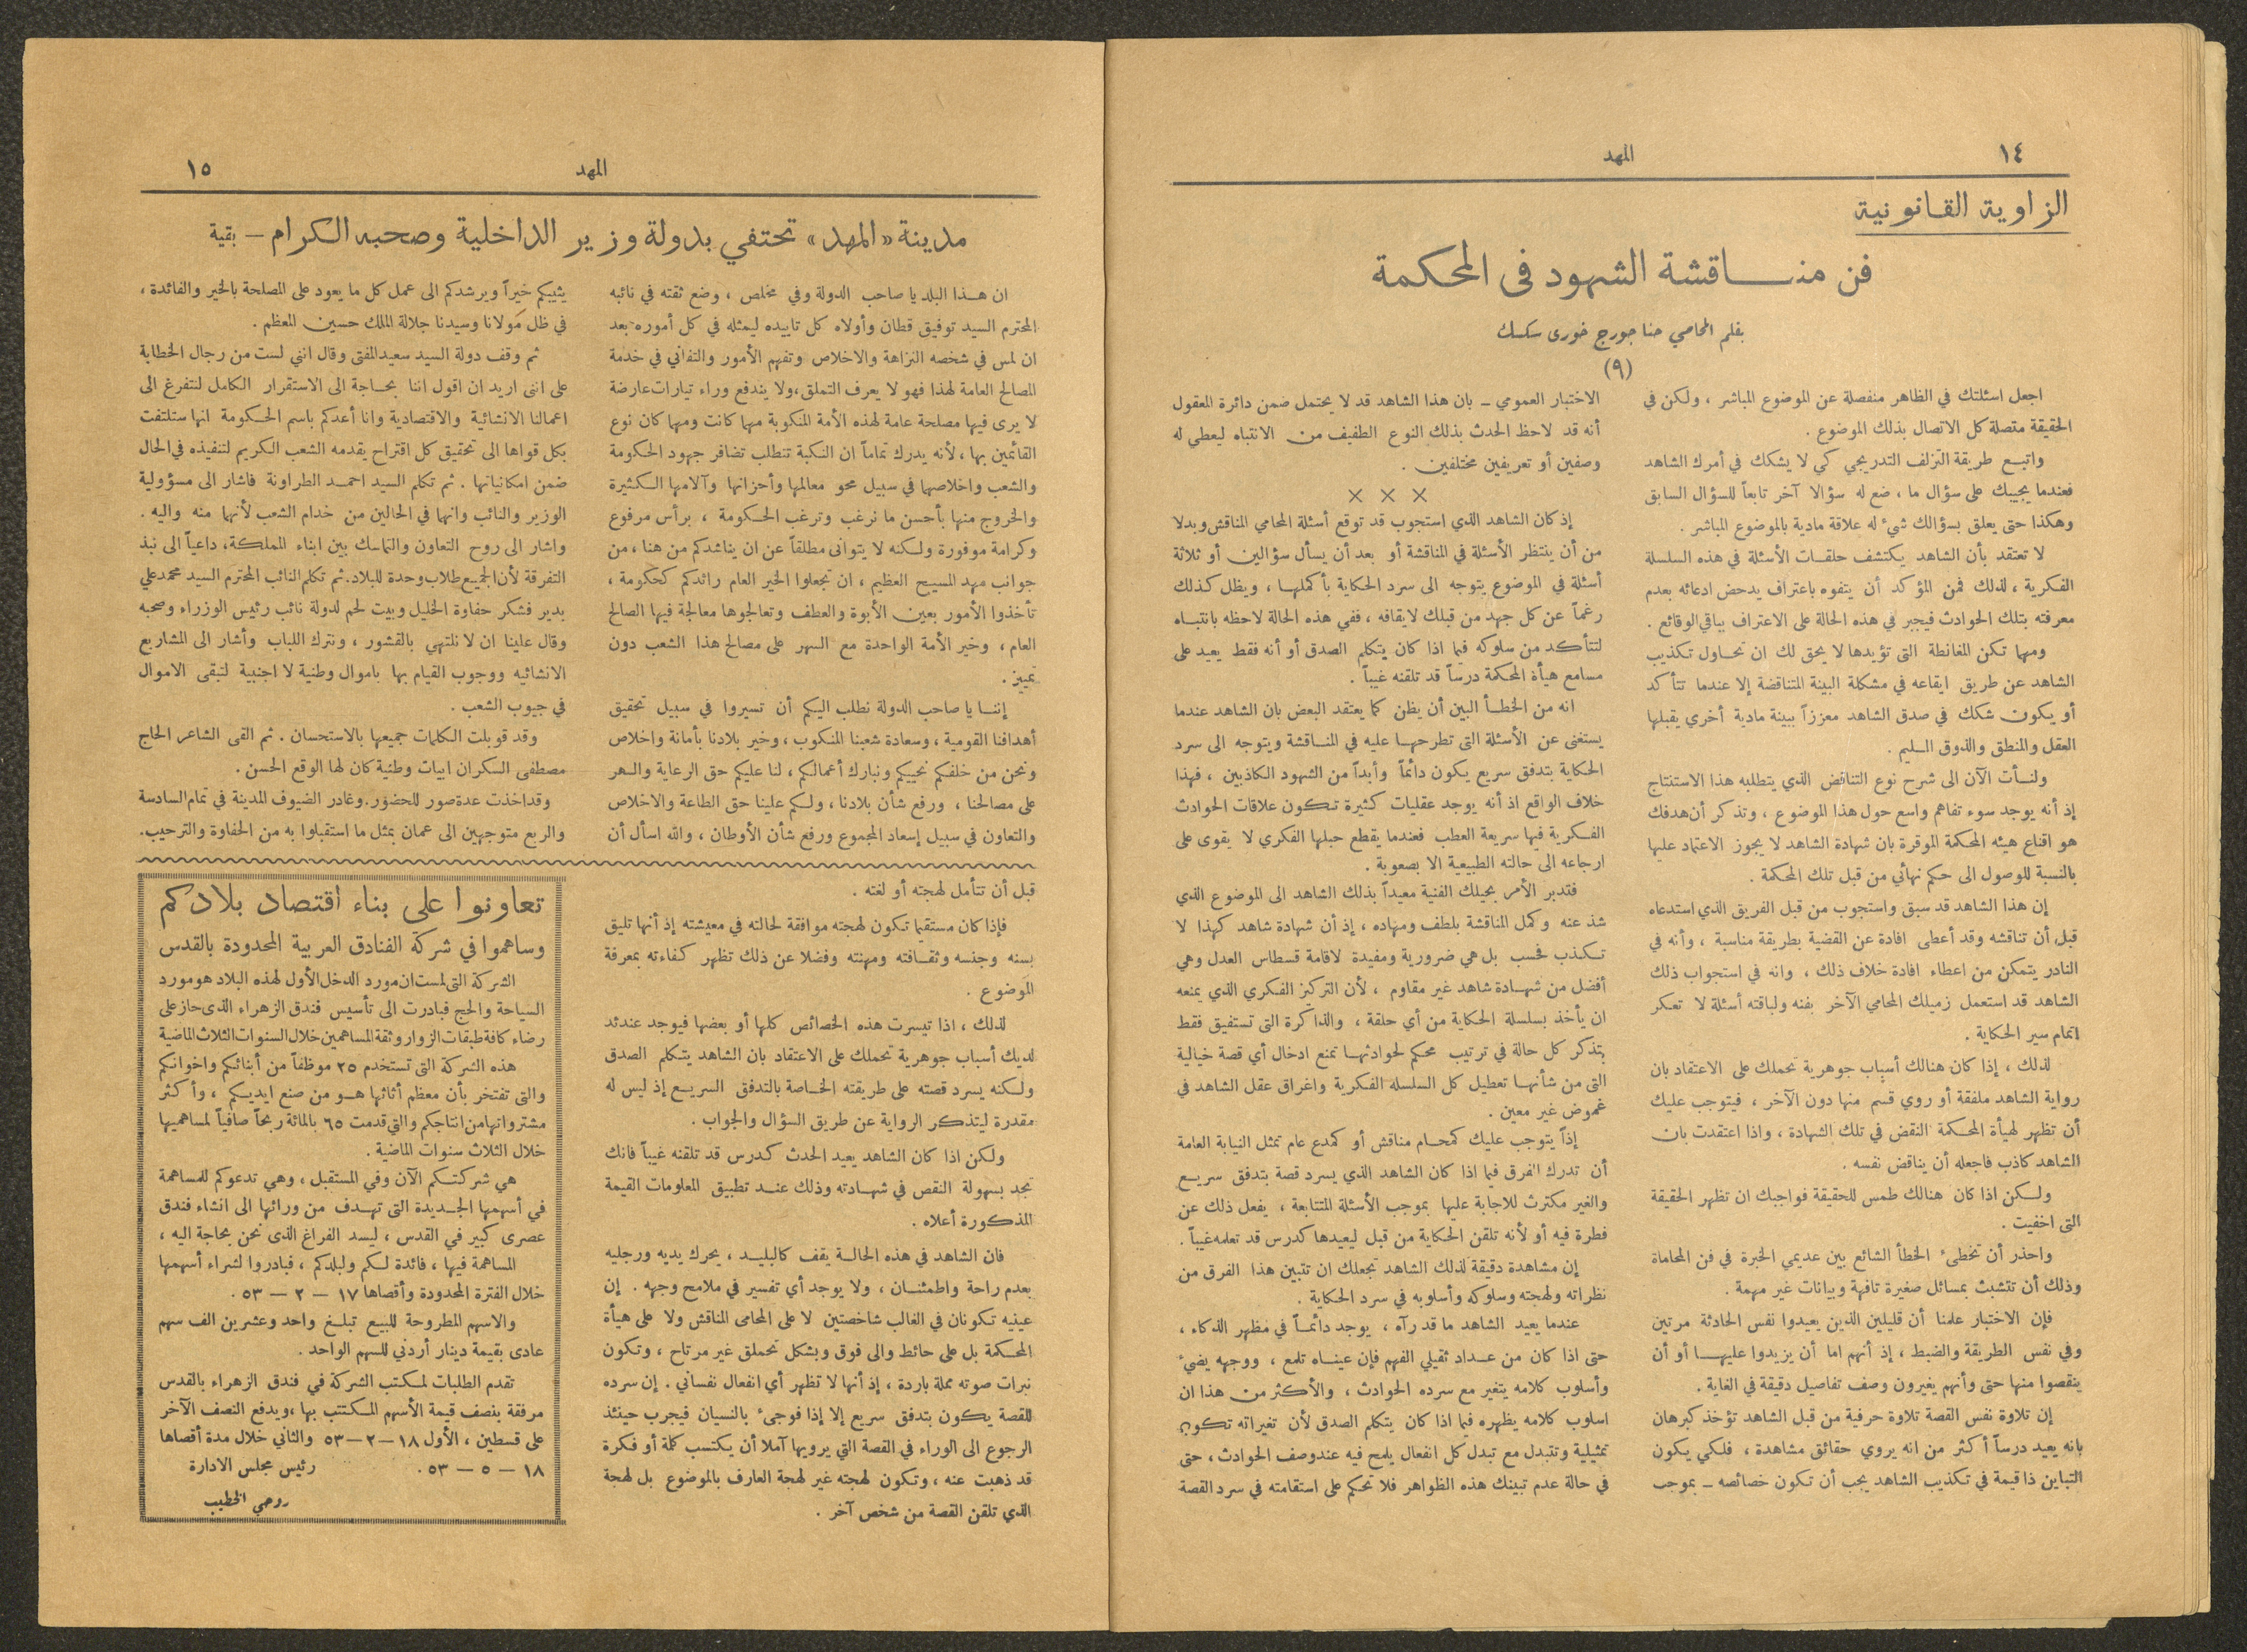 ١٤
المهد
الزاوية القانونية
فن مناقشة الشهود في المحكمة
بقلم المحامي حنا جورج خوري سكسك
(٩)
اجعل اسئلتك في الظاهر منفصلة عن الموضوع المباشر ، ولكن في
الحقيقة متصلة كل الاتصال بذلك الموضوع .
واتبع طريقة التزلف التدريجي كي لا يشكك في أمرك الشاهد
فعندما يجيبك على سؤال ما ، ضع له سؤالا آخر تابعاً للسؤال السابق
وهكذا حتى يعلق بسؤالك شيء له علاقة مادية بالموضوع المباشر .
لا تعتقد بأن الشاهد يكتشف حلقات الأسئلة في هذه السلسلة
الفكرية ، لذلك فمن المؤكد أن يتفوه باعتراف يدحض ادعائه بعدم
معرفته بتلك الحوادث فيجبر في هذه الحالة على الاعتراف بباقي الوقائع .
ومهما تكن المغانطة التي تؤيدها لا يحق لك ان تحاول تكذيب
الشاهد عن طريق ايقاعه في مشكلة البينة المتناقضة إلا عندما تتأكد
أو يكون شكك في صدق الشاهد معززاً ببينة مادية أخرى يقبلها
العقل والمنطق والذوق السليم .
ولنأت الآن الى شرح نوع التناقض الذي يتطلبه هذا الاستنتاج
إذ أنه يوجد سوء تفاهم واسع حول هذا الموضوع ، وتذكر أن هدفك
هو اقناع هيئه المحكمة الموقرة بان شهادة الشاهد لا يجوز الاعتماد عليها
بالنسبة للوصول الى حكم نهائي من قبل تلك المحكمة .
إن هذا الشاهد قد سبق واستجوب من قبل الفريق الذي استدعاه
قبل أن تناقشه وقد أعطى افادة عن القضية بطريقة مناسبة ، وأنه في
النادر يتمكن من اعطاء افادة خلاف ذلك ، وانه في استجواب ذلك
الشاهد قد استعمل زميلك المحامي الآخر بفنه ولباقته أسئلة لا تعكر
اتمام سير الحكاية .
لذلك ، إذا كان هنالك أسباب جوهرية تحملك على الاعتقاد بان
رواية الشاهد ملفقة أو روي قسم منها دون الآخر ، فيتوجب عليك
أن تظهر لهيأة المحكمة النقض في تلك الشهادة ، واذا اعتقدت بان
الشاهد كاذب فاجعله أن يناقض نفسه .
ولكن اذا كان هنالك طمس للحقيقة فواجبك ان تظهر الحقيقة
التي اخفيت .
واحذر أن تخطىء الخطأ الشائع بين عديمي الخبرة في فن المحاماة
وذلك أن تتشبث بمسائل صغيرة تافهة وبيانات غير مهمة .
فإن الاختبار علمنا أن قليلين الذين يعيدوا نفس الحادثة مرتين
وفي نفس الطريقة والضبط ، إذ أنهم اما أن يزيدوا عليها أو أن
ينقصوا منها حتى وأنهم يغيرون وصف تفاصيل دقيقة في الغاية .
إن تلاوة نفس القصة تلاوة حرفية من قبل الشاهد تؤخذ كبرهان
بانه يعيد درساً أكثر من انه يروي حقائق مشاهدة ، فلكي يكون
التباين ذا قيمة في تكذيب الشاهد يجب أن تكون خصائصه - بموجب
الاختبار العمومي - بان هذا الشاهد قد لا يحتمل ضمن دائرة المعقول
أنه قد لاحظ الحدث بذلك النوع الطفيف من الانتباه ليعطي له
وصفين أو تعريفين مختلفين .
× × ×
إذ كان الشاهد الذي استجوب قد توقع أسئلة المحامي المناقش وبدلا
من أن ينتظر الأسئلة في المناقشة أو بعد أن يسأل سؤالين أو ثلاثة
أسئلة في الموضوع يتوجه الى سرد الحكاية بأكملها ، ويظل كذلك
رغماً عن كل جهد من قبلك لايقافه ، ففي هذه الحالة لاحظه بانتباه
لتتأكد من سلوكه فيما اذا كان يتكلم الصدق أو أنه فقط يعيد على
مسامع هيأة المحكمة درساً قد تلقنه غيباً .
انه من الخطأ البين أن يظن كما يعتقد البعض بان الشاهد عندما
يستغنى عن الأسئلة التي تطرحها عليه في المناقشة ويتوجه الى سرد
الحكاية بتدفق سريع يكون دائماً وأبداً من الشهود الكاذبين ، فهذا
خلاف الواقع اذ أنه يوجد عقليات كثيرة تكون علاقات الحوادث
الفكرية فيها سريعة العطب فعندما يقطع حبلها الفكري لا يقوى على
ارجاعه الى حالته الطبيعية الا بصعوبة .
فتدبر الأمر بحيلك الفنية معيداً بذلك الشاهد الى الموضوع الذي
شذ عنه وكمل المناقشة بلطف ومهاده ، إذ أن شهادة شاهد كهذا لا
تكذب فحسب بل هي ضرورية ومفيدة لاقامة قسطاس العدل وهي
أفضل من شهادة شاهد غير مقاوم ، لأن التركيز الفكري الذي يمنعه
ان يأخذ بسلسلة الحكاية من أي حلقة ، والذاكرة التي تستفيق فقط
بتذكر كل حالة في ترتيب محكم لحوادثها تمنع ادخال أي قصة خيالية
التي من شأنها تعطيل كل السلسله الفكرية واغراق عقل الشاهد في
غموض غير معين .
إذاً يتوجب عليك كمحام مناقش أو كمدع عام تمثل النيابة العامة
أن تدرك الفرق فيما اذا كان الشاهد الذي يسرد قصة بتدفق سريع
والغير مكترث للاجابة عليها بموجب الأسئلة المتتابعة ، يفعل ذلك عن
فطرة فيه أو لأنه تلقن الحكاية من قبل ليعيدها كدرس قد تعلمه غيباً .
إن مشاهدة دقيقة لذلك الشاهد تجعلك ان تتبين هذا الفرق من
نظراته ولهجته وسلوكه وأسلوبه في سرد الحكاية .
عندما يعيد الشاهد ما قد رآه ، يوجد دائماً في مظهر الذكاء ،
حتى اذا كان من عداد ثقيلي الفهم فإن عيناه تلمع ، ووجهه يضيء
وأسلوب كلامه يتغير مع سرده الحوادث ، والأكثر من هذا ان
اسلوب كلامه يظهره فيما اذا كان يتكلم الصدق لأن تغيراته تكون
تمثيلية وتتبدل مع تبدل كل انفعال يلمح فيه عند وصف الحوادث ، حتى
في حالة عدم تبينك هذه الظواهر فلا تحكم على استقامته في سرد القصة
المهد
١٥
مدينة «المهد» تحتفي بدولة وزير الداخلية وصحبه الكرام – بقية
ان هذا البلد يا صاحب الدولة وفي مخلص ، وضع ثقته في نائبه
المحترم السيد توفيق قطان وأولاه كل تاييده ليمثله في كل أموره بعد
ان لمس في شخصه النزاهة والاخلاص وتفهم الأمور والتفاني في خدمة
المصالح العامة لهذا فهو لا يعرف التملق ، ولا يندفع وراء تيارات عارضة
لا يرى فيها مصلحة عامة لهذه الأمة المنكوبة مهما كانت ومهما كان نوع
القائمين بها ، لأنه يدرك تماماً ان النكبة تتطلب تضافر جهود الحكومة
والشعب واخلاصهما في سبيل محو معالمها وأحزانها وآلامها الكثيرة
والخروج منها بأحسن ما نرغب وترغب الحكومة ، برأس مرفوع
وكرامة موفورة ولكنه لا يتوانى مطلقاً عن ان يناشدكم من هنا ، من
جوانب مهد المسيح العظيم ، ان تجعلوا الخير العام رائدكم كحكومة ،
تأخذوا الأمور بعين الأبوة والعطف وتعالجوها معالجة فيها الصالح
العام ، وخير الأمة الواحدة مع السهر على مصالح هذا الشعب دون
تمييز .
إننا يا صاحب الدولة نطلب اليكم أن تسيروا في سبيل تحقيق
أهدافنا القومية ، وسعادة شعبنا المنكوب ، وخير بلادنا بأمانة واخلاص
ونحن من خلفكم نحييكم ونبارك أعمالكم ، لنا عليكم حق الرعاية والسهر
على مصالحنا ، ورفع شأن بلادنا ، ولكم علينا حق الطاعة والاخلاص
والتعاون في سبيل إسعاد المجموع ورفع شأن الأوطان ، والله اسأل أن
يثيبكم خيراً ويرشدكم الى عمل كل ما يعود على المصلحة بالخير والفائدة ،
في ظل مولانا وسيدنا جلالة الملك حسين المعظم .
ثم وقف دولة السيد سعيد المفتي وقال انني لست من رجال الخطابة
على انني اريد ان اقول اننا بحاجة الى الاستقرار الكامل لنتفرغ الى
اعمالنا الانشائية والاقتصادية وانا أعدكم باسم الحكومة انها ستلتفت
بكل قواها الى تحقيق كل اقتراح يقدمه الشعب الكريم لتنفيذه في الحال
ضمن امكانياتها . ثم تكلم السيد احمد الطراونة فاشار الى مسؤولية
الوزير والنائب وانهما في الحالين من خدام الشعب لأنهما منه واليه .
واشار الى روح التعاون والتماسك بين ابناء المملكة ، داعياً الى نبذ
التفرقة لأن الجميع طلاب وحدة للبلاد . ثم تكلم النائب المحترم السيد محمد علي
بدير فشكر حفاوة الخليل وبيت لحم لدولة نائب رئيس الوزراء وصحبه
وقال علينا ان لا نلتهي بالقشور ، ونترك اللباب وأشار الى المشاريع
الانشائيه ووجوب القيام بها باموال وطنية لا اجنبية لتبقى الاموال
في جيوب الشعب .
وقد قوبلت الكلمات جميعها بالاستحسان . ثم القى الشاعر الحاج
مصطفى السكران ابيات وطنية كان لها الوقع الحسن .
وقد اخذت عدة صور للحضور . وغادر الضيوف المدينة في تمام السادسة
والربع متوجهين الى عمان بمثل ما استقبلوا به من الحفاوة والترحيب .
قبل أن تتأمل لهجته أو لغته .
فإذا كان مستقيما تكون لهجته موافقة لحالته في معيشته إذ أنها تليق
بسنه وجنسه وثقافته ومهنته وفضلا عن ذلك تظهر كفاءته بمعرفة
الموضوع .
لذلك ، اذا تيسرت هذه الخصائص كلها أو بعضها فيوجد عندئد
لديك أسباب جوهرية تحملك على الاعتقاد بان الشاهد يتكلم الصدق
ولكنه يسرد قصته على طريقته الخاصة بالتدفق السريع إذ ليس له
مقدرة ليتذكر الرواية عن طريق السؤال والجواب .
ولكن اذا كان الشاهد يعيد الحدث كدرس قد تلقنه غيباً فانك
تجد بسهولة النقص في شهادته وذلك عند تطبيق المعلومات القيمة
المذكورة أعلاه .
فان الشاهد في هذه الحالة يقف كالبليد ، يحرك يديه ورجليه
بعدم راحة واطمئنان ، ولا يوجد أي تفسير في ملامح وجهه . إن
عينيه تكونان في الغالب شاخصتين لا على المحامي المناقش ولا على هيأة
المحكمة بل على حائط والى فوق وبشكل تحملق غير مرتاح ، وتكون
نبرات صوته مملة باردة ، إذ أنها لا تظهر أي انفعال نفساني . إن سرده
للقصة يكون بتدفق سريع إلا إذا فوجىء بالنسيان فيجرب حينئذ
الرجوع الى الوراء في القصة التي يرويها آملا أن يكتسب كلمة أو فكرة
قد ذهبت عنه ، وتكون لهجته غير لهجة العارف بالموضوع بل لهجة
الذي تلقن القصة من شخص آخر .
تعاونوا على بناء اقتصاد بلادكم
وساهموا في شركة الفنادق العربية المحدودة بالقدس
الشركة التي لمست ان مورد الدخل الأول لهذه البلاد هو مورد
السياحة والحج فبادرت الى تأسيس فندق الزهراء الذي حاز على
رضاء كافة طبقات الزوار وثقة المساهمين خلال السنوات الثلاث الماضية
هذه الشركة التي تستخدم ٢٥ موظفاً من أبنائكم واخوانكم
والتي تفتخر بأن معظم أثاثها هو من صنع ايديكم ، وأكثر
مشترواتها من انتاجكم والتي قدمت ٦٥ بالمائة ربحاً صافياً لمساهميها
خلال الثلاث سنوات الماضية .
هي شركتكم الآن وفي المستقبل ، وهي تدعوكم للمساهمة
في أسهمها الجديدة التي تهدف من ورائها الى انشاء فندق
عصري كبير في القدس ، ليسد الفراغ الذي نحن بحاجة اليه ،
المساهمة فيها ، فائدة لكم ولبلدكم ، فبادروا لشراء أسهمها
خلال الفترة المحدودة وأقصاها ١٧ – ٢ – ٥٣ .
والاسهم المطروحة للبيع تبلغ واحد وعشرين الف سهم
عادي بقيمة دينار أردني للسهم الواحد .
تقدم الطلبات لمكتب الشركة في فندق الزهراء بالقدس
مرفقة بنصف قيمة الأسهم المكتتب بها ، ويدفع النصف الآخر
على قسطين ، الأول ١٨ – ٢ – ٥٣ والثاني خلال مدة أقصاها
١٨ – ٥ – ٥٣ . رئيس مجلس الادارة
روحي الخطيب